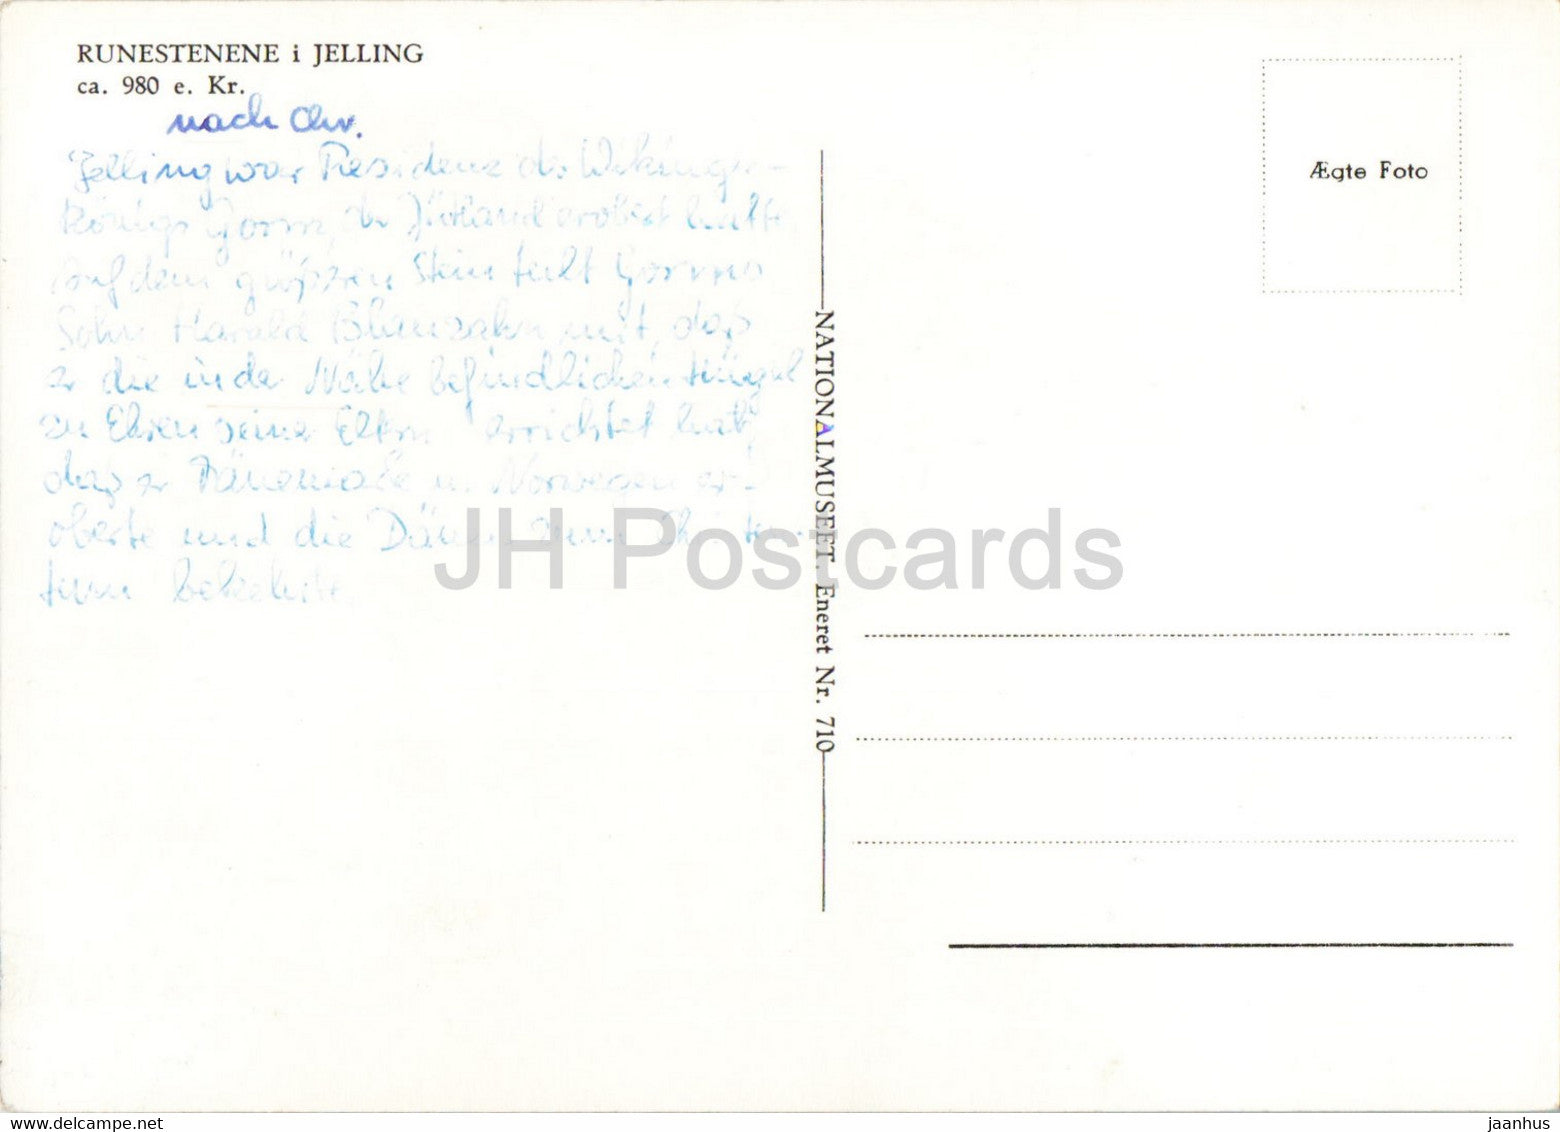 RUNESTENENE i JELLING
ca. 980 e. Kr.
nach Chr.
Jelling war Residenz der Wikinger-
königs Gorm, der Jütland erobert hatte.
Auf dem größeren Stein teilt Gorms
Sohn Harald Blauzahn mit, daß
er die in der Nähe befindlichen Hügel
zu Ehren seiner Eltern errichtet hat,
daß er Dänemark u. Norwegen er-
oberte und die Dänen zum Christen-
tum bekehrte.
NATIONALMUSEET. Eneret Nr. 710
Ægte Foto
JH Postcards
www.delcampe.net
jaanhus